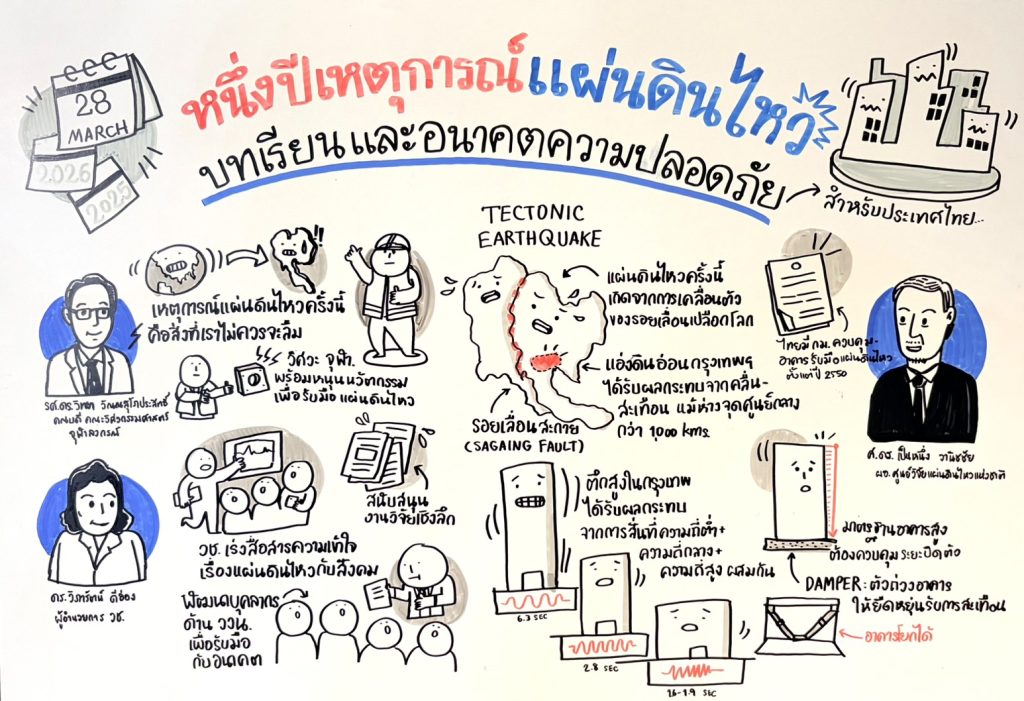 28
MARCH
2026
2025
หนึ่งปีเหตุการณ์แผ่นดินไหว
บทเรียนและอนาคตความปลอดภัย
สำหรับประเทศไทย...
เหตุการณ์แผ่นดินไหวครั้งนี้
คือสิ่งที่เราไม่ควรจะลืม
วิศวะ จุฬา.
พร้อมหนุนนวัตกรรม
เพื่อรับมือแผ่นดินไหว
รศ.ดร.วิทยา วัณณสุโภประสิทธิ์
คณบดี คณะวิศวกรรมศาสตร์
จุฬาลงกรณ์
สนับสนุน
งานวิจัยเชิงลึก
วช. เร่งสื่อสารความเข้าใจ
เรื่องแผ่นดินไหวกับสังคม
ดร.วิภารัตน์ ดีอ่อง
ผู้อำนวยการ วช.
พัฒนาบุคลากร
ด้าน ววน.
เพื่อรับมือ
กับอนาคต
TECTONIC
EARTHQUAKE
แผ่นดินไหวครั้งนี้
เกิดจากการเคลื่อนตัว
ของรอยเลื่อนเปลือกโลก
แอ่งดินอ่อนกรุงเทพฯ
ได้รับผลกระทบจากคลื่น-
สะเทือน แม้ห่างจุดศูนย์กลาง
กว่า 1,000 kms.
รอยเลื่อนสะกาย
(SAGAING FAULT)
ไทยมี กม. ควบคุม-
อาคารรับมือแผ่นดินไหว
ตั้งแต่ปี 2550
ศ.ดร. เป็นหนึ่ง วานิชชัย
ผอ.ศูนย์วิจัยแผ่นดินไหวแห่งชาติ
ตึกสูงในกรุงเทพ
ได้รับผลกระทบ
จากการสั่นที่ความถี่ต่ำ+
ความถี่กลาง+
ความถี่สูง ผสมกัน
6.3 SEC
2.8 SEC
1.6-1.9 SEC
มาตรฐานอาคารสูง
ต้องควบคุมระยะบิดตัว
DAMPER: ตัวถ่วงอาคาร
ให้ยืดหยุ่นรับการสะเทือน
อาคารโยกได้